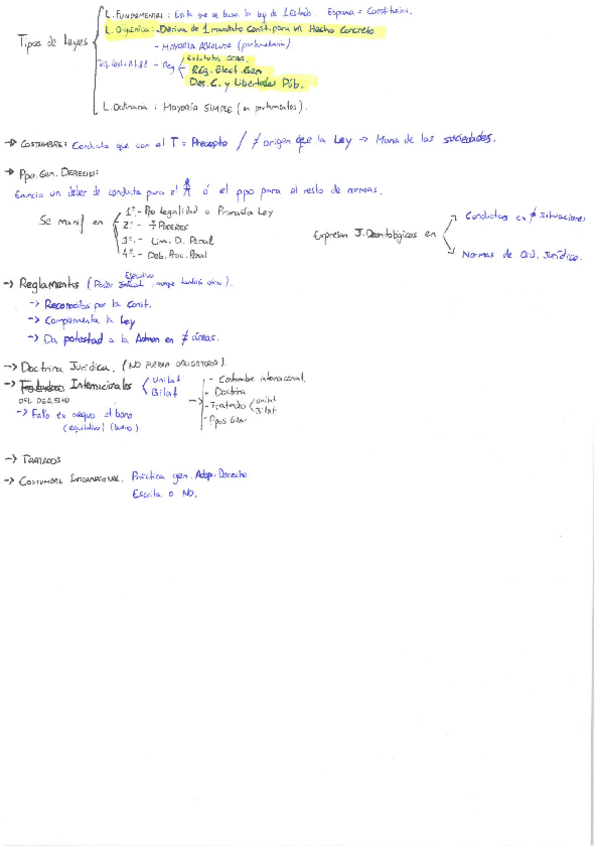 Tipos de Leyes
L. FUNDAMENTAL: En la que se basa la ley de 1 Estado. España = Constitución.
L. Orgánica: Deriva de 1 mandato Const. para un Hecho Concreto
- MAYORÍA ABSOLUTA (parlamentaria)
- Reg
Estatutos
Rég. Elect. Gen
Des. C. y Libertades Púb.
L. Ordinaria: MAYORÍA SIMPLE (en parlamentos).
-> COSTUMBRE: Conducta que con el T = Precepto / ≠ origen que la Ley -> Mana de las sociedades.
-> Ppo. Gen. DERECHO:
un deber de conducta para el ó el ppo para el resto de normas.
Se manif en
1º.- Ppo Legalidad o Primacía Ley
2º.- PODERES
3º.- Lim. D. Penal
4º.- Deb. Proc. Penal
Expresan J. Deontológicos en
Conductas en ≠ situaciones
Normas de Ord. Jurídico.
-> Reglamentos (Poder Ejecutivo, aunque también otros).
-> Reconocidos por la Const.
-> Complementa la Ley
-> Da potestad a la Admon en ≠ áreas.
-> Doctrina Jurídica. (NO FUERZA OBLIGATORIA).
-> Internacionales
DEL DERECHO
Unilat
Bilat
->
- Costumbre internacional.
- Doctrina
- Tratados
Unilat
Bilat
- Ppos Gen
-> Fallo ex aequo et bono
(equitativo) (bueno)
-> TRATADOS
-> COSTUMBRE INTERNACIONAL. Práctica gen. Adop. Derecho
Escrita o No.